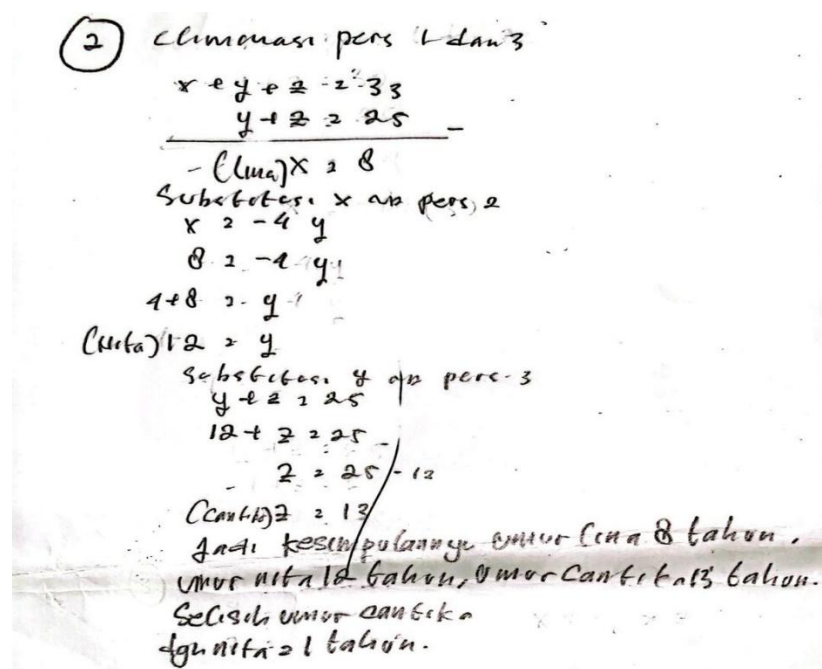 2 Eliminasi pers 1 dan 3
x + y + z = 33
y + z = 25 -
- (Lina) x = 8
Substitusi x pers 2
x = -4 y
8 = -4 y
4+8 = y
(Nita) 12 = y
Substitusi y pers. 3
y + z = 25
12 + z = 25
z = 25 - 12
(Cantika) z = 13
Jadi kesimpulannya umur Lina 8 tahun,
umur nita 12 tahun, umur Cantika 13 tahun.
Selisih umur cantika
dgn nita = 1 tahun.